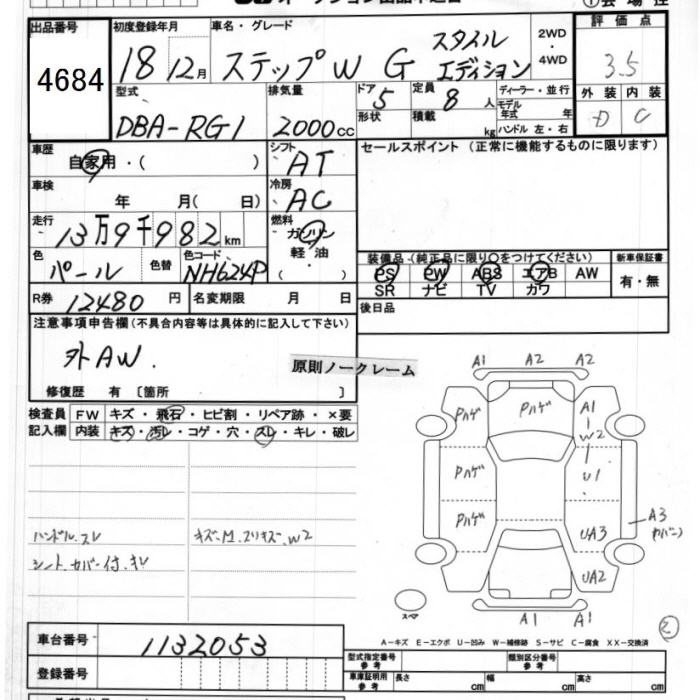 出品番号 初度登録年月 車名・グレード 2WD・4WD 評価点
4684 18 12月 ステップW G スタイル エディション 3.5
型式 排気量 ドア 定員 ディーラー・並行 外装 内装
DBA-RG1 2000cc 5 8人 モデル年式 年 D C
形状 積載 kg ハンドル 左・右
車歴 シフト セールスポイント (正常に機能するものに限ります)
自家用・( ) AT
車検 冷房
年 月( 日) AC
走行 燃料
13万9千982km ガソリン
軽油
色 色替 色コード 装備品(純正品に限り○をつけてください) 新車保証書
パール NH624P PS PW ABS エアB AW 有・無
SR ナビ TV カワ
R券 12480円 名変期限 月 日 後日品
注意事項申告欄(不具合内容等は具体的に記入して下さい)
外AW.
原則ノークレーム
修復歴 有 〔箇所 〕
検査員 FW キズ・飛石・ヒビ割・リペア跡・×要
記入欄 内装 キズ・汚レ・コゲ・穴・スレ・キレ・破レ
ハンドル.スレ キズ.M.スリキズ.W2
シート.カバー付.キレ
A1 A2 A2
Pハゲ Pハゲ A1
W2
Pハゲ U1
Pハゲ UA3 A3
UA2
スペア A1 A1
A-キズ E-エクボ U-凹み W-補修跡 S-サビ C-腐食 XX-交換済
車台番号 1132053
型式指定番号 参考 類別区分番号 参考
登録番号 車庫証明用 参考 長さ cm 幅 cm 高さ cm